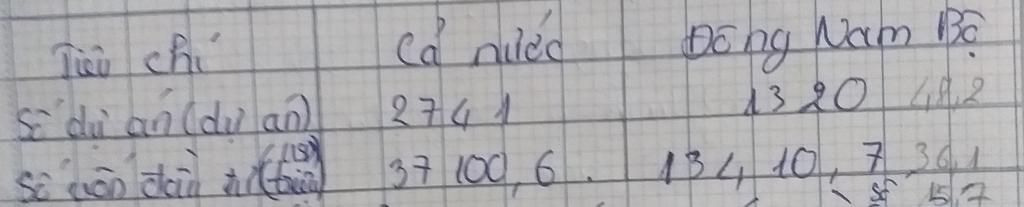 Tiêu chí Cả nước Đông Nam Bộ
Số dự án (dự án) 2741 1320 48,2
Số vốn đầu tư ( 37100,6. 13410,7 36,1
15,7